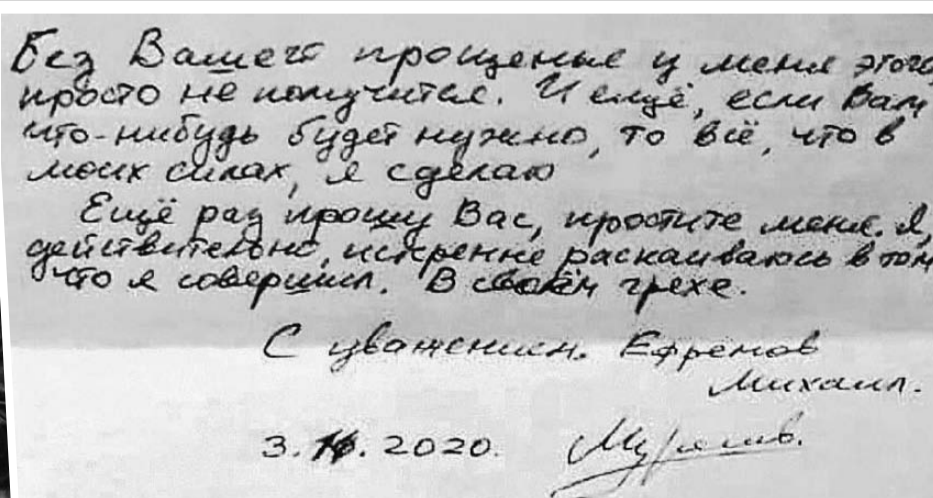 Без Вашего прощенье у меня этого
просто не получится. И ещё, если Вам
что-нибудь будет нужно, то всё, что в
моих силах, я сделаю
Ещё раз прошу Вас, простите меня. Я,
действительно, искренне раскаиваюсь в том
что я совершил. В своём грехе.
С уважением. Ефремов
Михаил.
3. 2020.